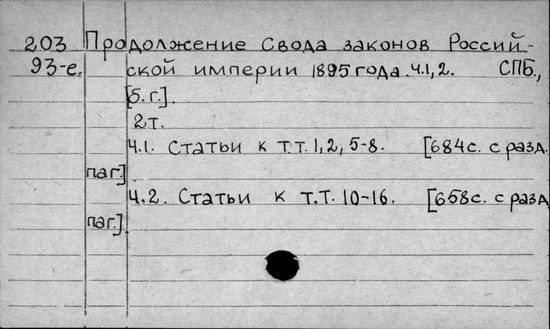 203 Продолжение Свода законов Россий-
93-е. ской империи 1895 года. Ч.1, 2. СПБ.,
[б. г.].
2т.
Ч.1. Статьи к т.т. 1, 2, 5-8. [684с. с разд.
паг.].
Ч.2. Статьи к т.т. 10-16. [658с. с разд.
паг.].